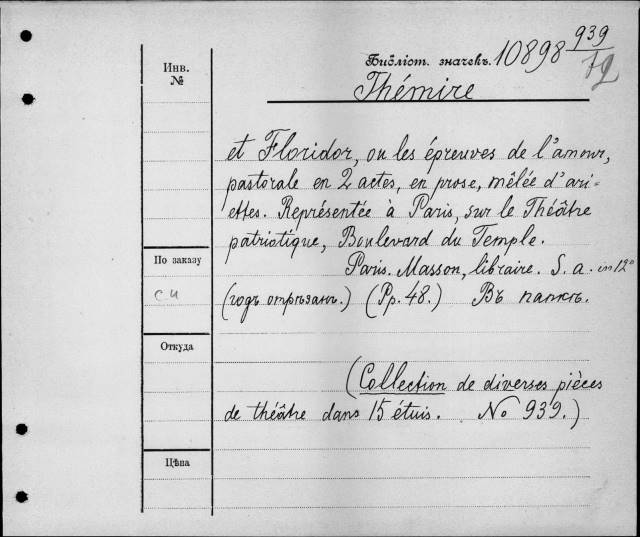 939
Библіот. значекъ. 10898
Инв. №
Thémire
et Floridor, ou les épreuves de l'amour,
pastorale en 2 actes, en prose, mêlée d'ari-
ettes. Représentée à Paris, sur le Théâtre
patriotique, Boulevard du Temple.
По заказу
Paris. Masson, libraire. S. a. in 12°
си
(годъ отрѣзанъ.) (Pp. 48.) Въ папкѣ.
Откуда
(Collection de diverses pièces
de théâtre dans 15 étuis. No 939.)
Цѣна